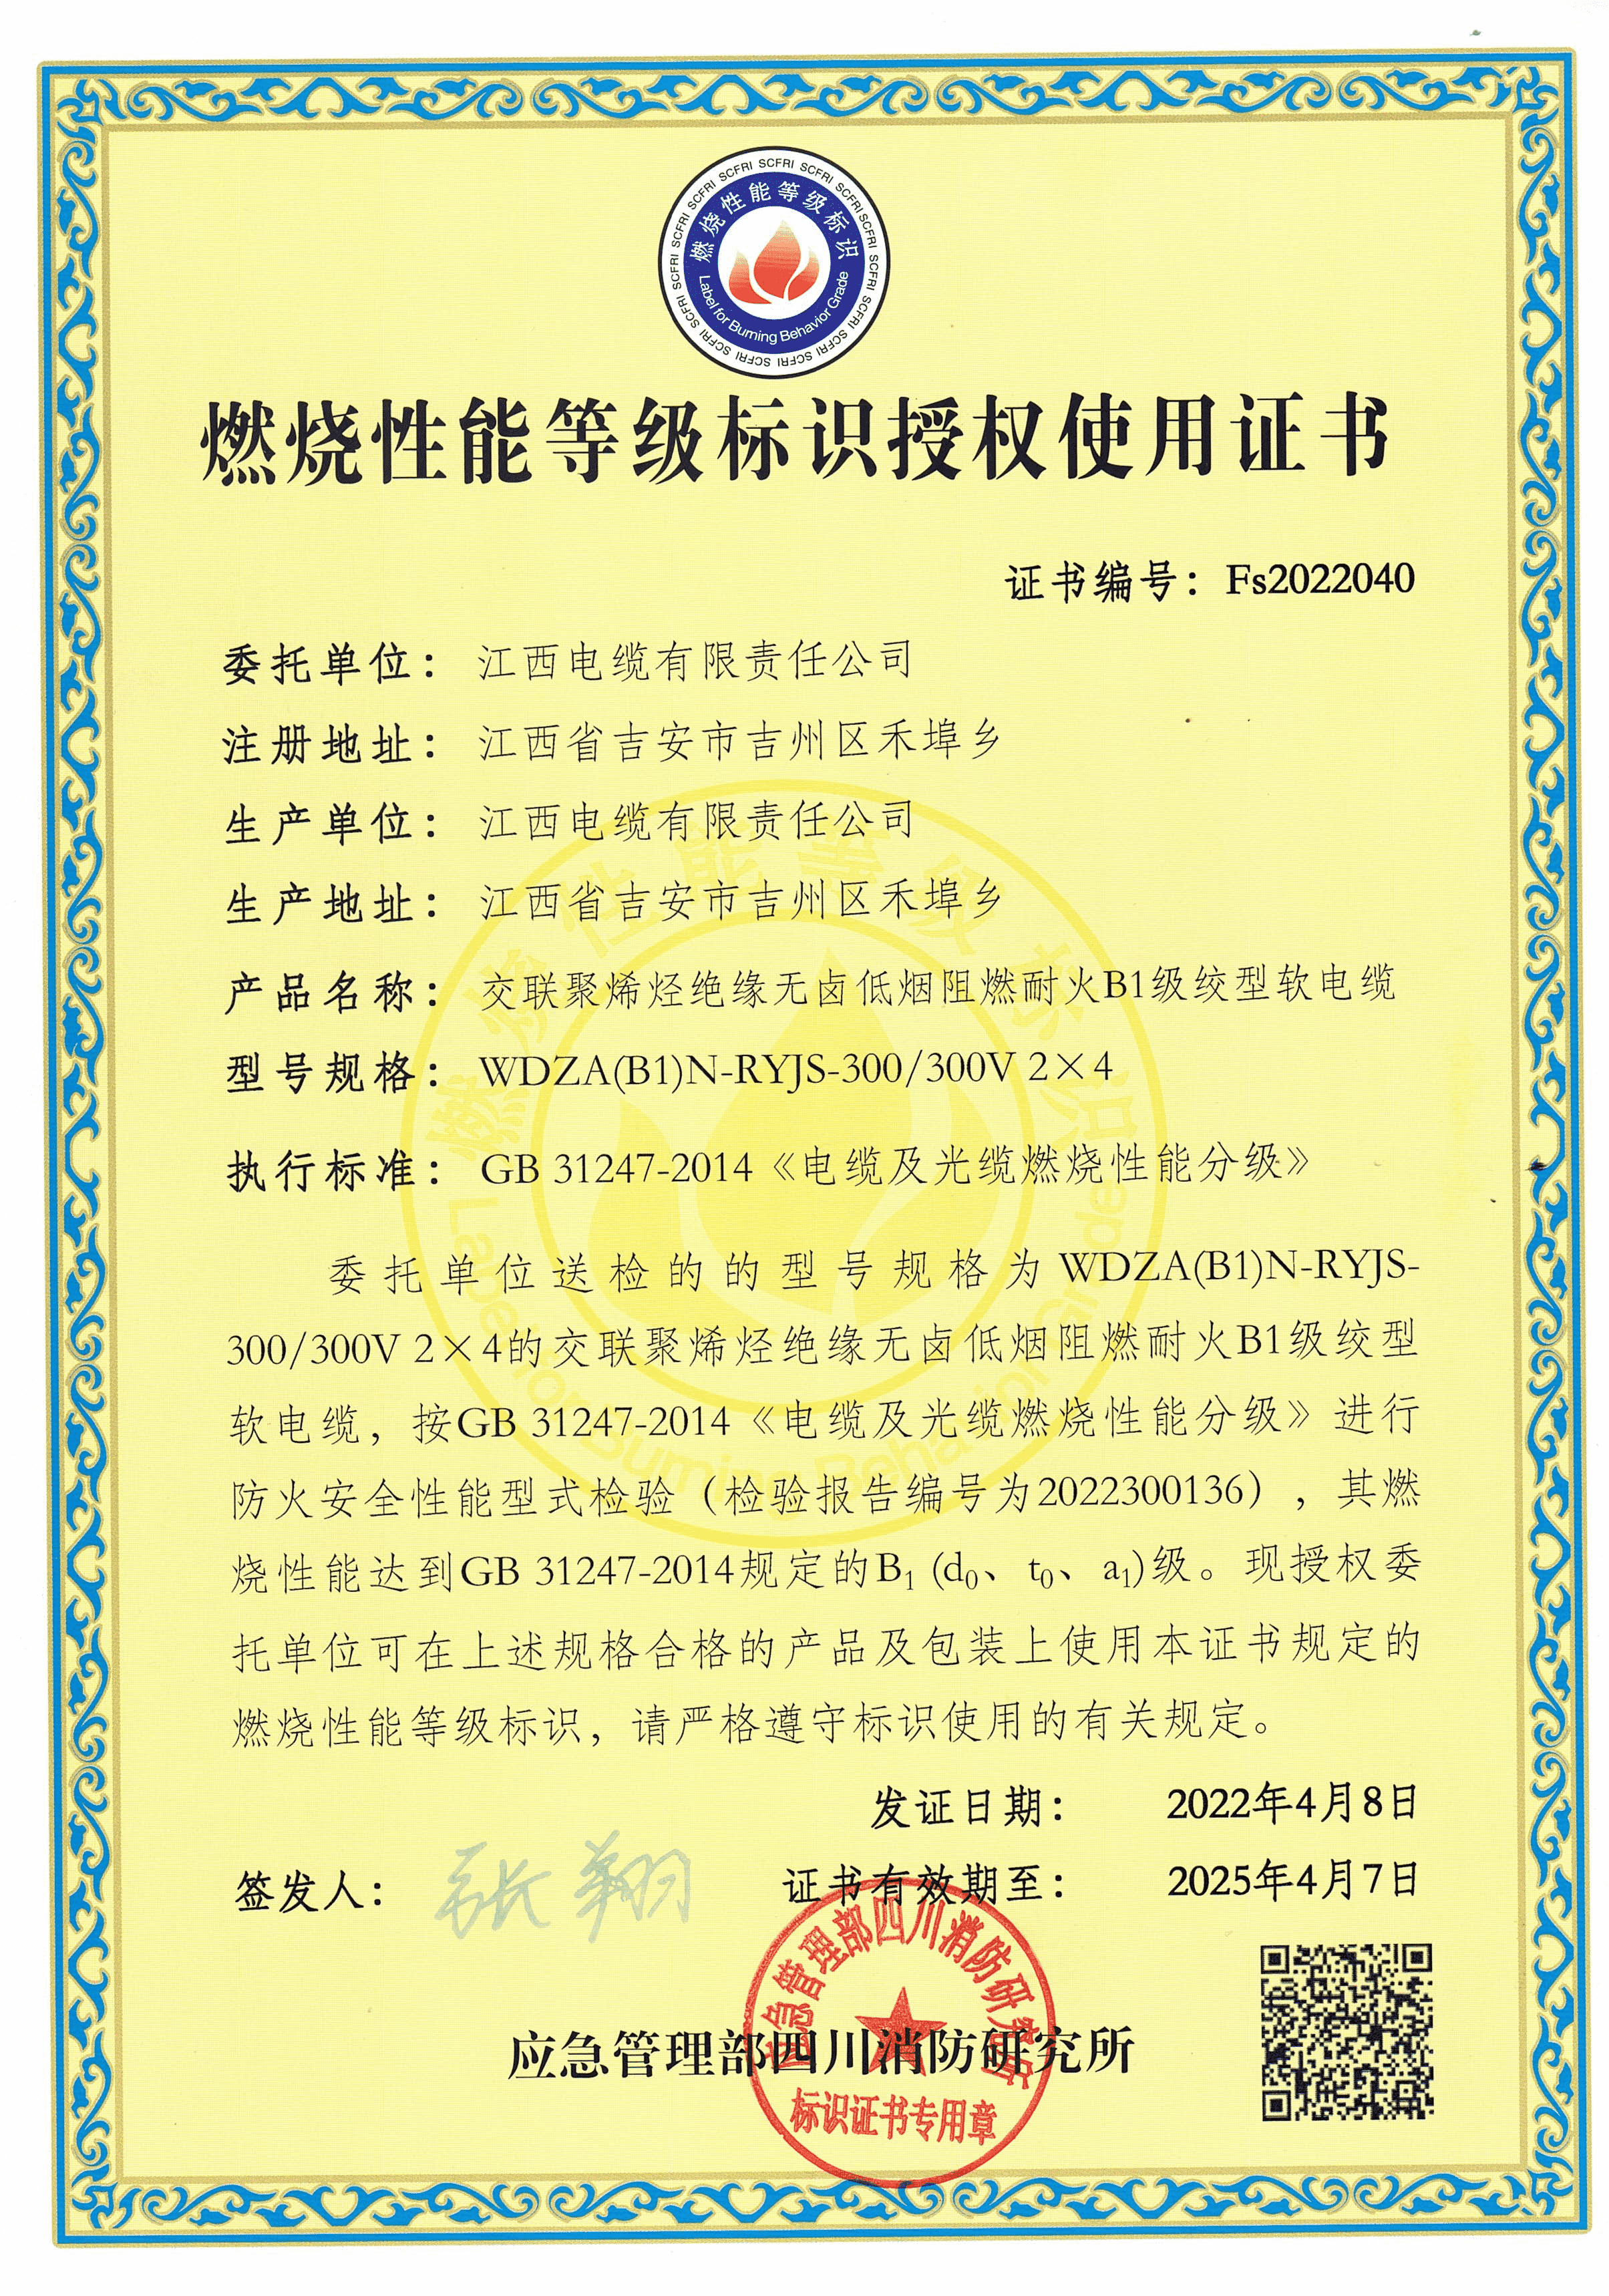 SCFRI SCFRI SCFRI SCFRI SCFRI SCFRI SCFRI SCFRI SCFRI SCFRI SCFRI SCFRI SCFRI SCFRI SCFRI SCFRI
燃烧性能等级标识
Label for Burning Behavior Grade
燃烧性能等级标识授权使用证书
证书编号：Fs2022040
委托单位：江西电缆有限责任公司
注册地址：江西省吉安市吉州区禾埠乡
生产单位：江西电缆有限责任公司
生产地址：江西省吉安市吉州区禾埠乡
产品名称：交联聚烯烃绝缘无卤低烟阻燃耐火B1级绞型软电缆
型号规格：WDZA(B1)N-RYJS-300/300V 2×4
执行标准：GB 31247-2014《电缆及光缆燃烧性能分级》
委托单位送检的的型号规格为WDZA(B1)N-RYJS-
300/300V 2×4的交联聚烯烃绝缘无卤低烟阻燃耐火B1级绞型
软电缆，按GB 31247-2014《电缆及光缆燃烧性能分级》进行
防火安全性能型式检验（检验报告编号为2022300136），其燃
烧性能达到GB 31247-2014规定的B₁ (d₀、t₀、a₁)级。现授权委
托单位可在上述规格合格的产品及包装上使用本证书规定的
燃烧性能等级标识，请严格遵守标识使用的有关规定。
发证日期：2022年4月8日
签发人：张翔
证书有效期至：2025年4月7日
应急管理部四川消防研究所
应急管理部四川消防研究所
标识证书专用章
燃烧性能等级标识
Label for Burning Behavior Grade